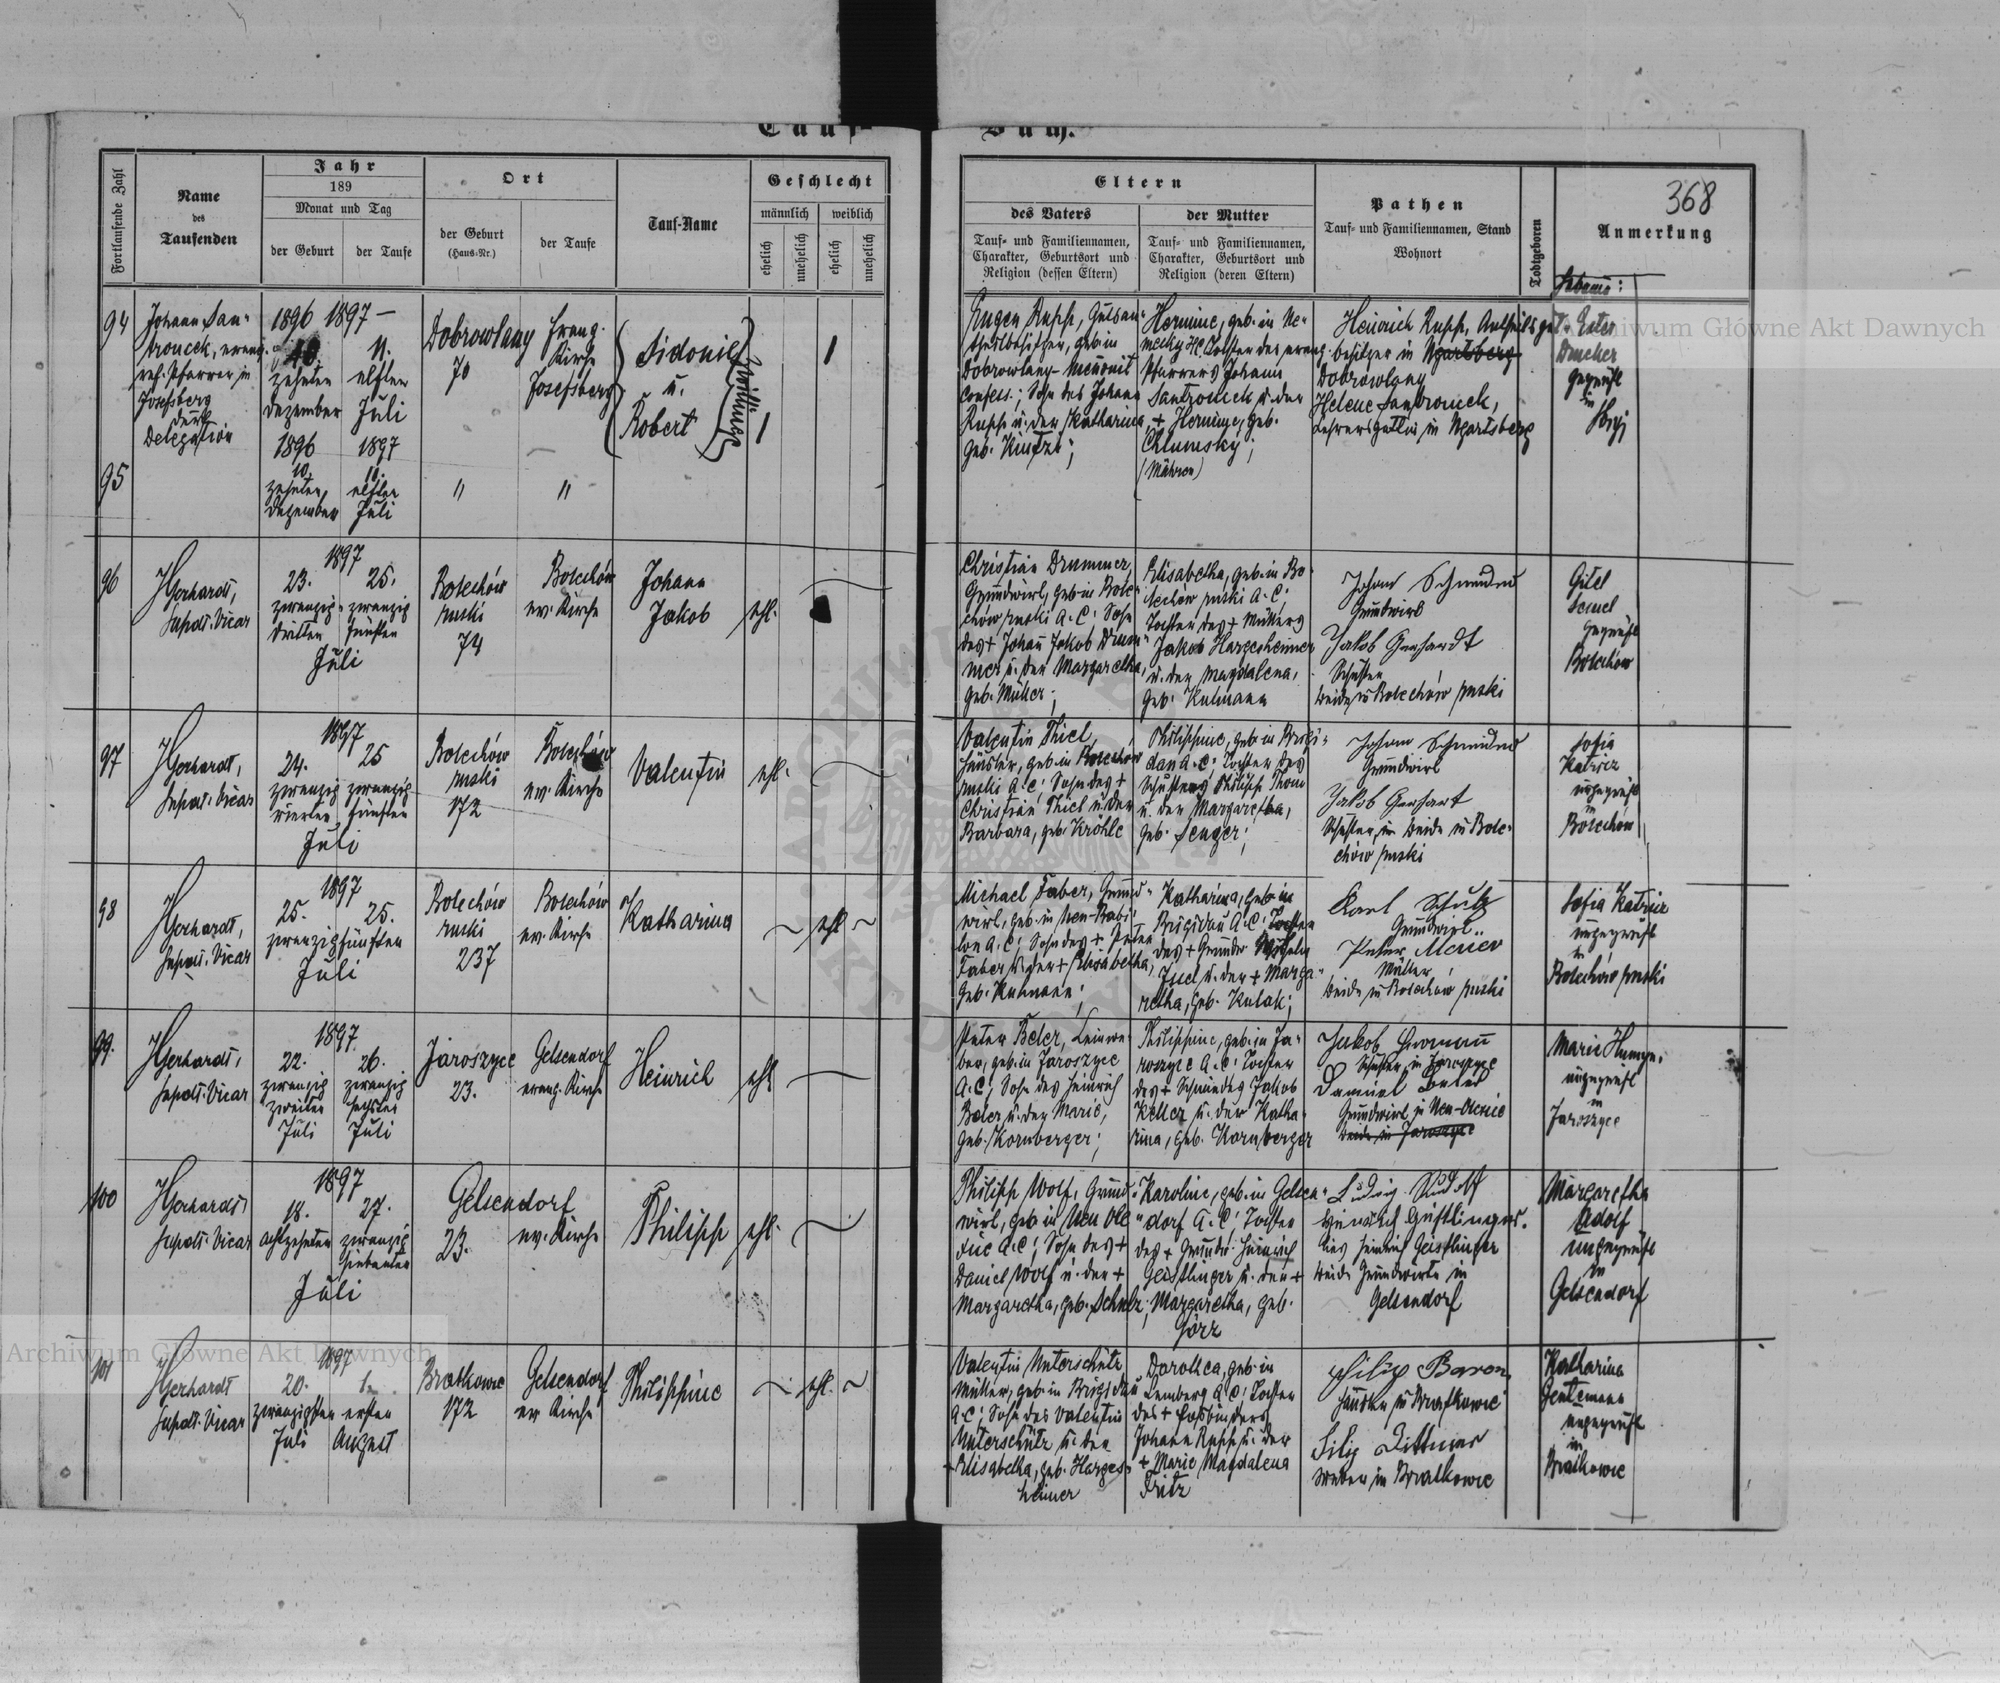 Tauf-
Buch.
368
Fortlaufende Zahl
Name
des
Taufenden
Jahr
189
Monat und Tag
der Geburt
der Taufe
Ort
der Geburt
(Haus-Nr.)
der Taufe
Tauf-Name
Geschlecht
männlich
weiblich
ehelich
unehelich
ehelich
unehelich
Eltern
des Vaters
Tauf- und Familiennamen,
Charakter, Geburtsort und
Religion (dessen Eltern)
der Mutter
Tauf- und Familiennamen,
Charakter, Geburtsort und
Religion (deren Eltern)
Pathen
Tauf- und Familiennamen, Stand
Wohnort
Todtgeboren
Anmerkung
Hebame:
94
Johann San-
ref. Pfarrer in
Josefsberg
durch
Delegation
1896
10.
zehnten
Dezember
1897 —
11.
elften
Juli
Dobrowlany
70
evang.
Kirche
Josefsberg
Sidonie
u.
Robert
Zwillinge
Eugen Rupp, Gutsan-
theilbesitzer, geb. in
Dobrowlany
Confess.; Sohn des Johann
Rupp u. der Katharina
Hermine, geb. in
Tochter des evang.
Pfarrers Johann
Santroucek u. der
+ Hermine, geb.
Chlumsky;
(Mähren)
Heinrich Rupp, Antheilsgut-
besitzer in Ugartsberg
Dobrowlany
Helene Santroucek,
Lehrersgattin in Ugartsberg
Ester
Drucker
geprüft
in
Stryj
95
1896
10.
zehnten
Dezember
1897
11.
elften
Juli
"
"
96
Gerhardt,
Supdt. Vicar
1897
23.
zwanzig-
dritten
25.
zwanzig
fünften
Juli
Bolechów
ruski
74
Bolechów
ev. Kirche
Johann
Jakob
ehl.
Christian Drummer,
Grundwirt, geb. in Bole-
chów ruski A.C; Sohn
des + Johann Jakob Drum-
mer u. der Margaretha,
geb. Müller;
Elisabetha, geb. in Bo-
lechów ruski A.C;
Tochter des + Müllers
Jakob Hargesheimer
u. der Magdalena,
geb. Kulmann
Johann Schneider
Grundwirt
Jakob Gerhardt
Schuster
beide in Bolechów ruski
Gitel
Semel
geprüft
Bolechów
97
Gerhardt,
Supdt. Vicar
1897
24.
zwanzig
vierten
25
zwanzig
fünften
Juli
Bolechów
ruski
172
Bolechów
ev. Kirche
Valentin
ehl.
Valentin Thiel,
Häusler, geb. in Bolechów
ruski A.C; Sohn des +
Christian Thiel u. der
Barbara, geb. Kröhle
Philippine, geb. in Brigi-
dau A.C; Tochter des
Schusters Philipp Thom
u. der Margaretha,
geb. Senger;
Johann Schneider
Grundwirt
Jakob Gerhart
Schuster, beide in Bole-
chów ruski
Sofia
Katricz
ungeprüft
in
Bolechów
98
Gerhardt,
Supdt. Vicar
1897
25.
25.
zwanzigfünften
Juli
Bolechów
ruski
237
Bolechów
ev. Kirche
Katharina
ehl
Michael Faber, Grund-
wirt, geb. in Neu-Babi-
lon A.C; Sohn des + Peter
Faber u. der + Elisabetha,
geb. Kulmann;
Katharina, geb. in
Brigidau A.C; Tochter
des + Grundw Wilhelm
Juel u. der + Marga-
retha, geb. Kulak;
Karl Schulz
Grundwirt
Peter Meuer
Müller
beide in Bolechów ruski
Sofia Katricz
ungeprüft
in
Bolechów ruski
99.
Gerhardt,
Supdt. Vicar
1897
22.
zwanzig
zweiten
Juli
26.
zwanzig
sechsten
Juli
Jaroszyce
23.
Gelsendorf
evang. Kirche
Heinrich
ehl
Peter Beler, Leinwe-
ber, geb. in Jaroszyce
A.C; Sohn des Heinrich
Beler u. der Marie,
geb. Kornberger;
Philippine, geb. in Ja-
roszyce A.C; Tochter
des + Schmiedes Jakob
Keller u. der Katha-
rina, geb. Kornberger
Jakob
Schuster, in Jaroszyce
Daniel
Grundwirt, in Neu-Olexic
beide in Jaroszyce
Marie
ungeprüft
in
Jaroszyce
100
Gerhardt,
Supdt. Vicar
1897
18.
achtzehnten
27.
zwanzig
siebenten
Juli
Gelsendorf
23.
ev. Kirche
Philipp
ehl.
Philipp Wolf, Grund-
wirt, geb in Neu Ole-
xic A.C; Sohn des +
Daniel Wolf u. der +
Margaretha, geb. Schulz;
Karoline, geb. in Gelsen-
dorf A.C; Tochter
des + Grundw. Heinrich
Geistlinger u. der +
Margaretha, geb.
Görz
Ludwig Rudolf
Heinrich Geistlinger.
dies Heinrich Geistlinger
beide Grundwirte in
Gelsendorf
Margaretha
Adolf
ungeprüft
in
Gelsendorf
101
Gerhardt
Supdt. Vicar
1897
20.
zwanzigsten
Juli
1.
ersten
August
Bratkowce
172
Gelsendorf
ev. Kirche
Philippine
ehl.
Valentin Unterschütz
Müller, geb. in Brigidau
A.C; Sohn des Valentin
Unterschütz u. der
+ Elisabetha, geb. Harges-
heimer
Dorothea, geb. in
Lemberg A.C; Tochter
des + Fassbinders
Johann Rupp u. der
+ Marie Magdalena
Fritz
Philip Baron
Häusler in Bratkowce
Filip Dittmer
Weber in Bratkowce
Katharina
Gentemann
ungeprüft
in
Bratkowce
Archiwum Główne Akt Dawnych
Archiwum Główne Akt Dawnych